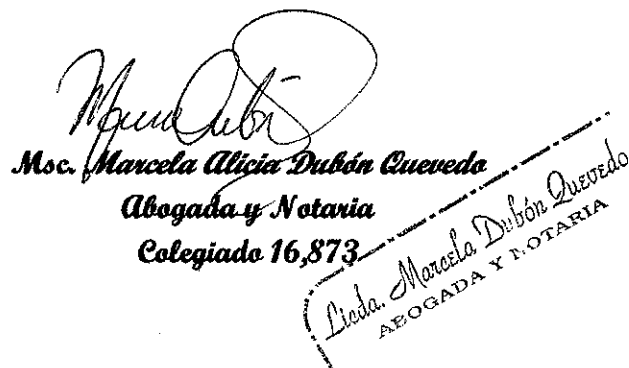 Msc. Marcela Alicia Dubón Quevedo
Abogada y Notaria
Colegiado 16,873
Licda. Marcela Dubón Quevedo
ABOGADA Y NOTARIA